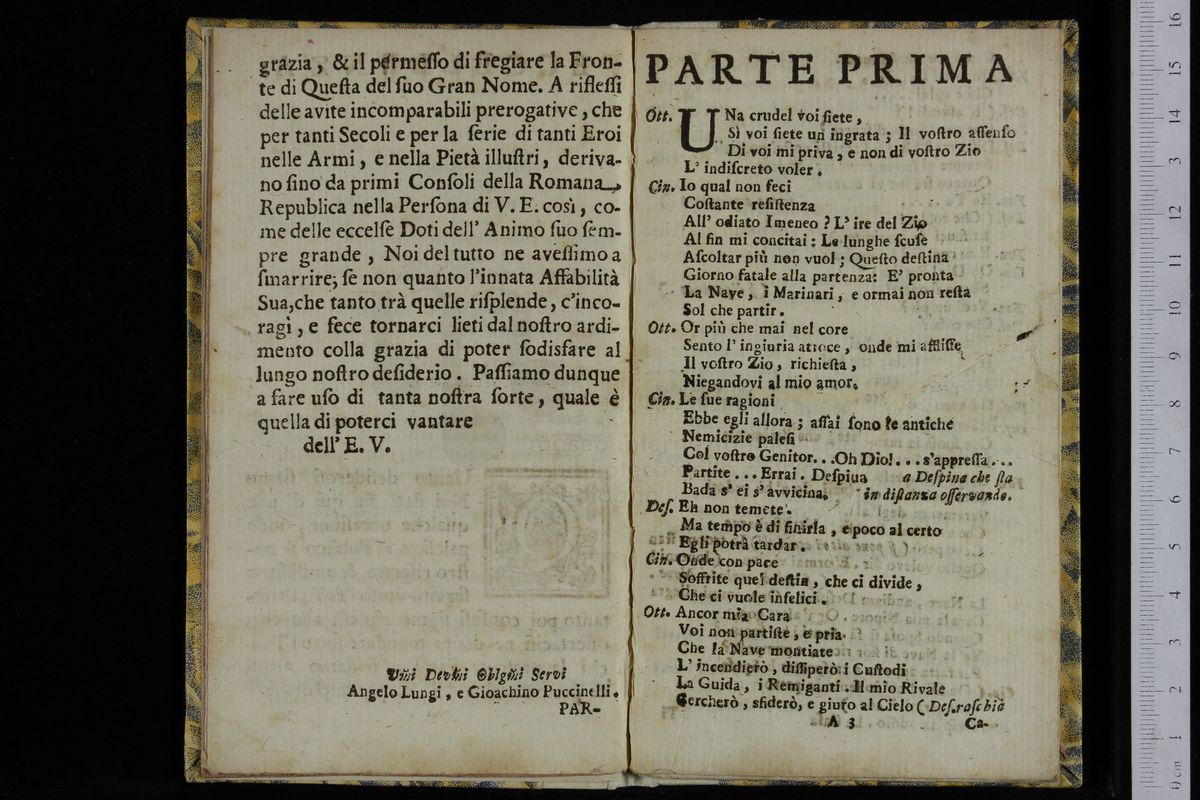 grazia, & il permeſſo di fregiare la Fron-
te di Queſta del ſuo Gran Nome. A rifleſſi
delle avite incomparabili prerogative, che
per tanti Secoli e per la ſerie di tanti Eroi
nelle Armi, e nella Pietà illuſtri, deriva-
no ſino da primi Conſoli della Romana
Republica nella Perſona di V. E. così, co-
me delle eccelſe Doti dell' Animo ſuo ſem-
pre grande, Noi del tutto ne aveſſimo a
ſmarrire; ſe non quanto l'innata Affabilità
Sua, che tanto trà quelle riſplende, c'inco-
ragì, e fece tornarci lieti dal noſtro ardi-
mento colla grazia di poter ſodisfare al
lungo noſtro deſiderio. Paſſiamo dunque
a fare uſo di tanta noſtra ſorte, quale è
quella di poterci vantare
dell' E. V.
Umi Devmi Oblgmi Servi
Angelo Lungi, e Gioachino Puccinelli.
PAR-
PARTE PRIMA
Ott. UNa crudel voi ſiete,
Sì voi ſiete un ingrata; Il voſtro aſſenſo
Di voi mi priva, e non di voſtro Zio
L' indiſcreto voler.
Cin. Io qual non feci
Coſtante reſiſtenza
All' odiato Imeneo? L' ire del Zio
Al fin mi concitai: Le lunghe ſcuſe
Aſcoltar più non vuol; Queſto deſtina
Giorno fatale alla partenza: E' pronta
La Nave, i Marinari, e ormai non reſta
Sol che partir.
Ott. Or più che mai nel core
Sento l' ingiuria atroce, onde mi affliſſe
Il voſtro Zio, richieſta,
Niegandovi al mio amor.
Cin. Le ſue ragioni
Ebbe egli allora; aſſai ſono le antiche
Nemicizie paleſi
Col voſtro Genitor. . .Oh Dio!. . . s'appreſſa . . .
Partite . . . Errai. Deſpina a Deſpina che ſta
Bada s' ei s' avvicina. in diſtanza oſſervando.
Deſ. Eh non temete.
Ma tempo è di finirla, e poco al certo
Egli potrà tardar.
Cin. Onde con pace
Soffrite quel deſtin, che ci divide,
Che ci vuole infelici.
Ott. Ancor mia Cara
Voi non partiſte, e pria
Che la Nave montiate
L' incendierò, diſſiperò i Cuſtodi
La Guida, i Remiganti. Il mio Rivale
Cercherò, sfiderò, e giuro al Cielo (Deſ. raſchia
A 3 Ca-